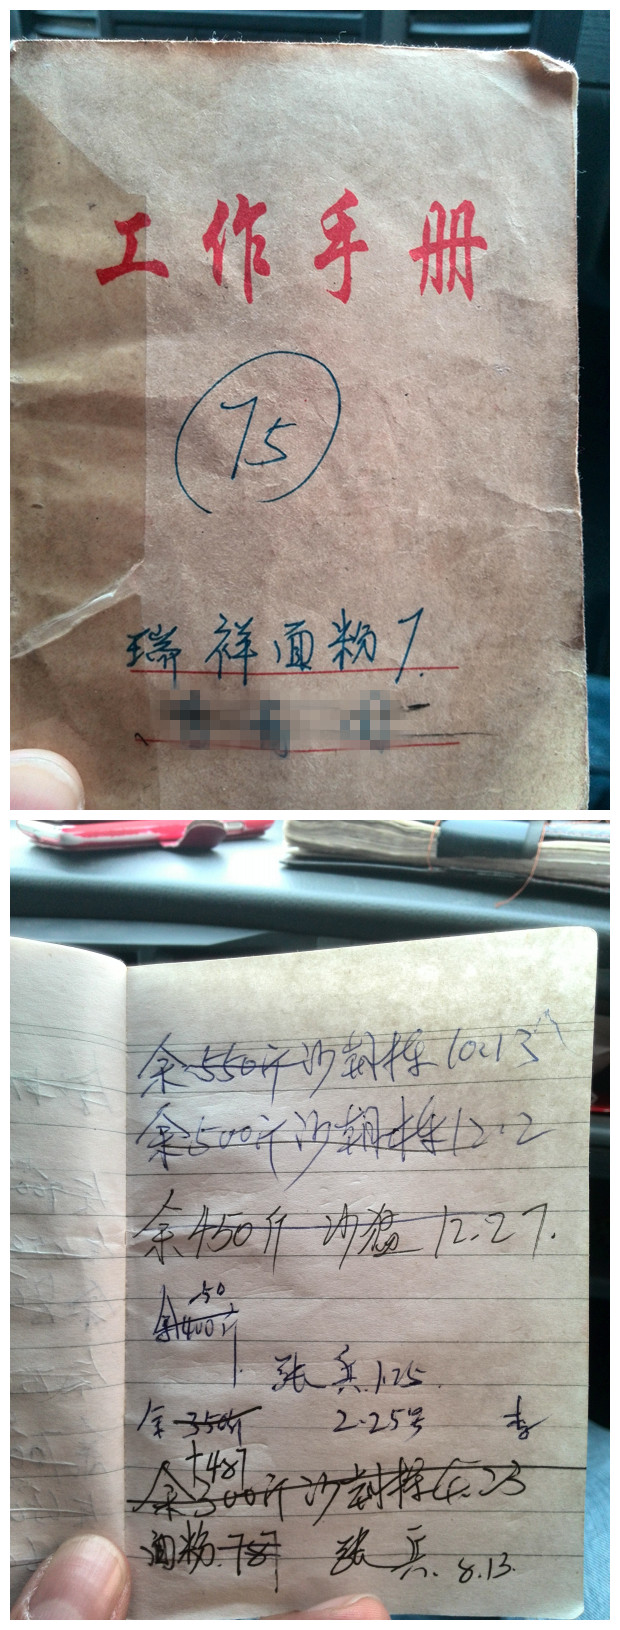 工作手册
75
瑞祥面粉厂
余550斤沙朝栋10.13
余500斤沙朝栋12.2
余450斤 沙 12.27.
50
余400斤
张兵1.25.
余350斤 2.25号 李
+487
余300斤沙朝栋4.23
面粉.787 张兵.8.13.